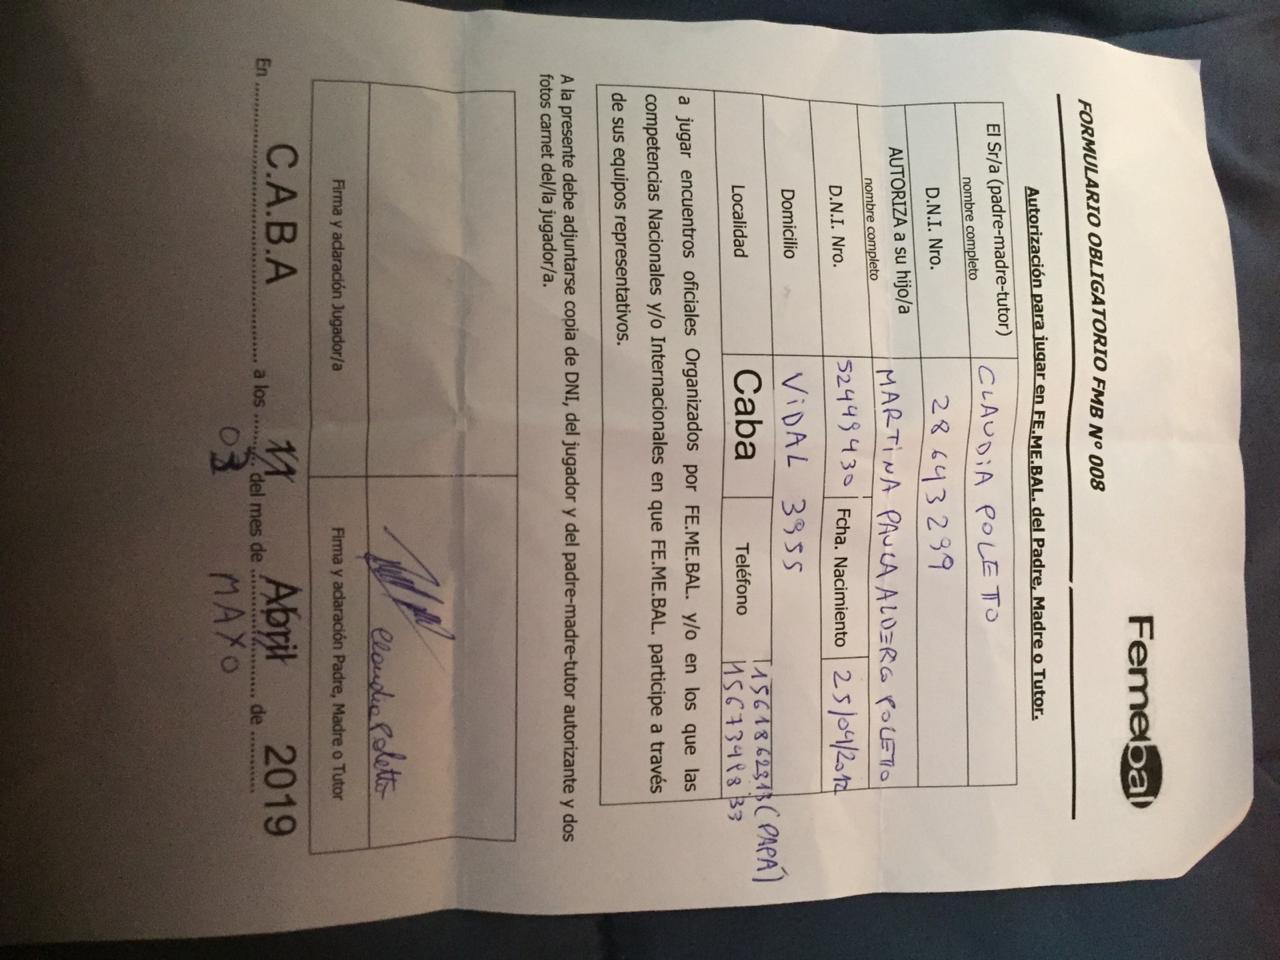 Femebal
FORMULARIO OBLIGATORIO FMB Nº 008
Autorización para jugar en FE.ME.BAL. del Padre, Madre o Tutor.
El Sr/a (padre-madre-tutor)
nombre completo
CLAUDIA POLETTO
D.N.I. Nro.
28643299
AUTORIZA a su hijo/a
nombre completo
MARTINA PAULA ALDERG POLETTO
D.N.I. Nro.
52449430
Fcha. Nacimiento
25/04/2012
Domicilio
VIDAL 3955
Localidad
Caba
Teléfono
(PAPÁ)
a jugar encuentros oficiales Organizados por FE.ME.BAL. y/o en los que las
competencias Nacionales y/o Internacionales en que FE.ME.BAL. participe a través
de sus equipos representativos.
A la presente debe adjuntarse copia de DNI, del jugador y del padre-madre-tutor autorizante y dos
fotos carnet del/la jugador/a.
Claudia Poletto
Firma y adaración Jugador/a
Firma y adaración Padre, Madre o Tutor
En C.A.B.A a los 11 del mes de Abril de 2019
03 MAYO